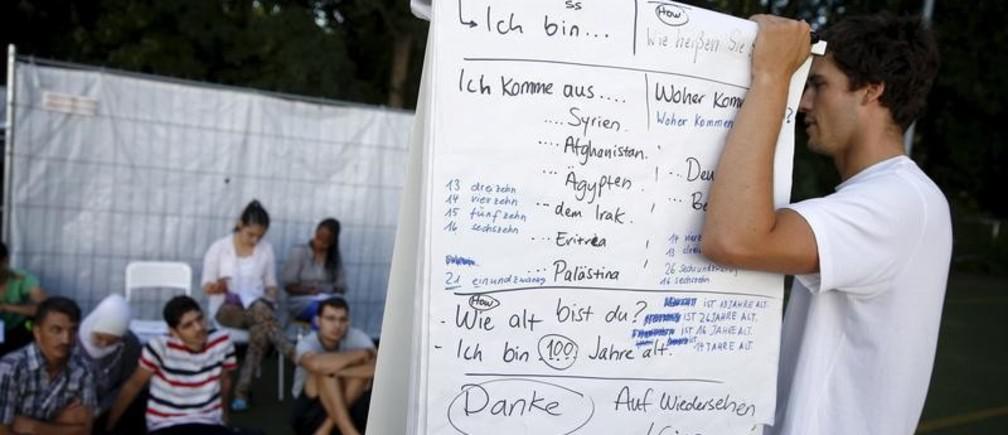 ss
Ich bin...
How
Wie heißen Sie
Ich Komme aus....
Woher Kom
Woher Kommen
?
....Syrien.
....Afghanistan.
...Ägypten
...dem Irak.
...Eritrea
...Palästina
13 dreizehn
14 vierzehn
15 fünfzehn
16 sechszehn
21 einundzwanzig
...Deu
...Be
14 vierz
13 drei
26 sechsundzwa
16 sechszehn
How
- Wie alt bist du?
- Ich bin 100 Jahre alt.
IST 13 JAHRE ALT.
IST 26 JAHRE ALT.
IST 16 JAHRE ALT.
14 JAHRE ALT.
Danke
Auf Wiedersehen